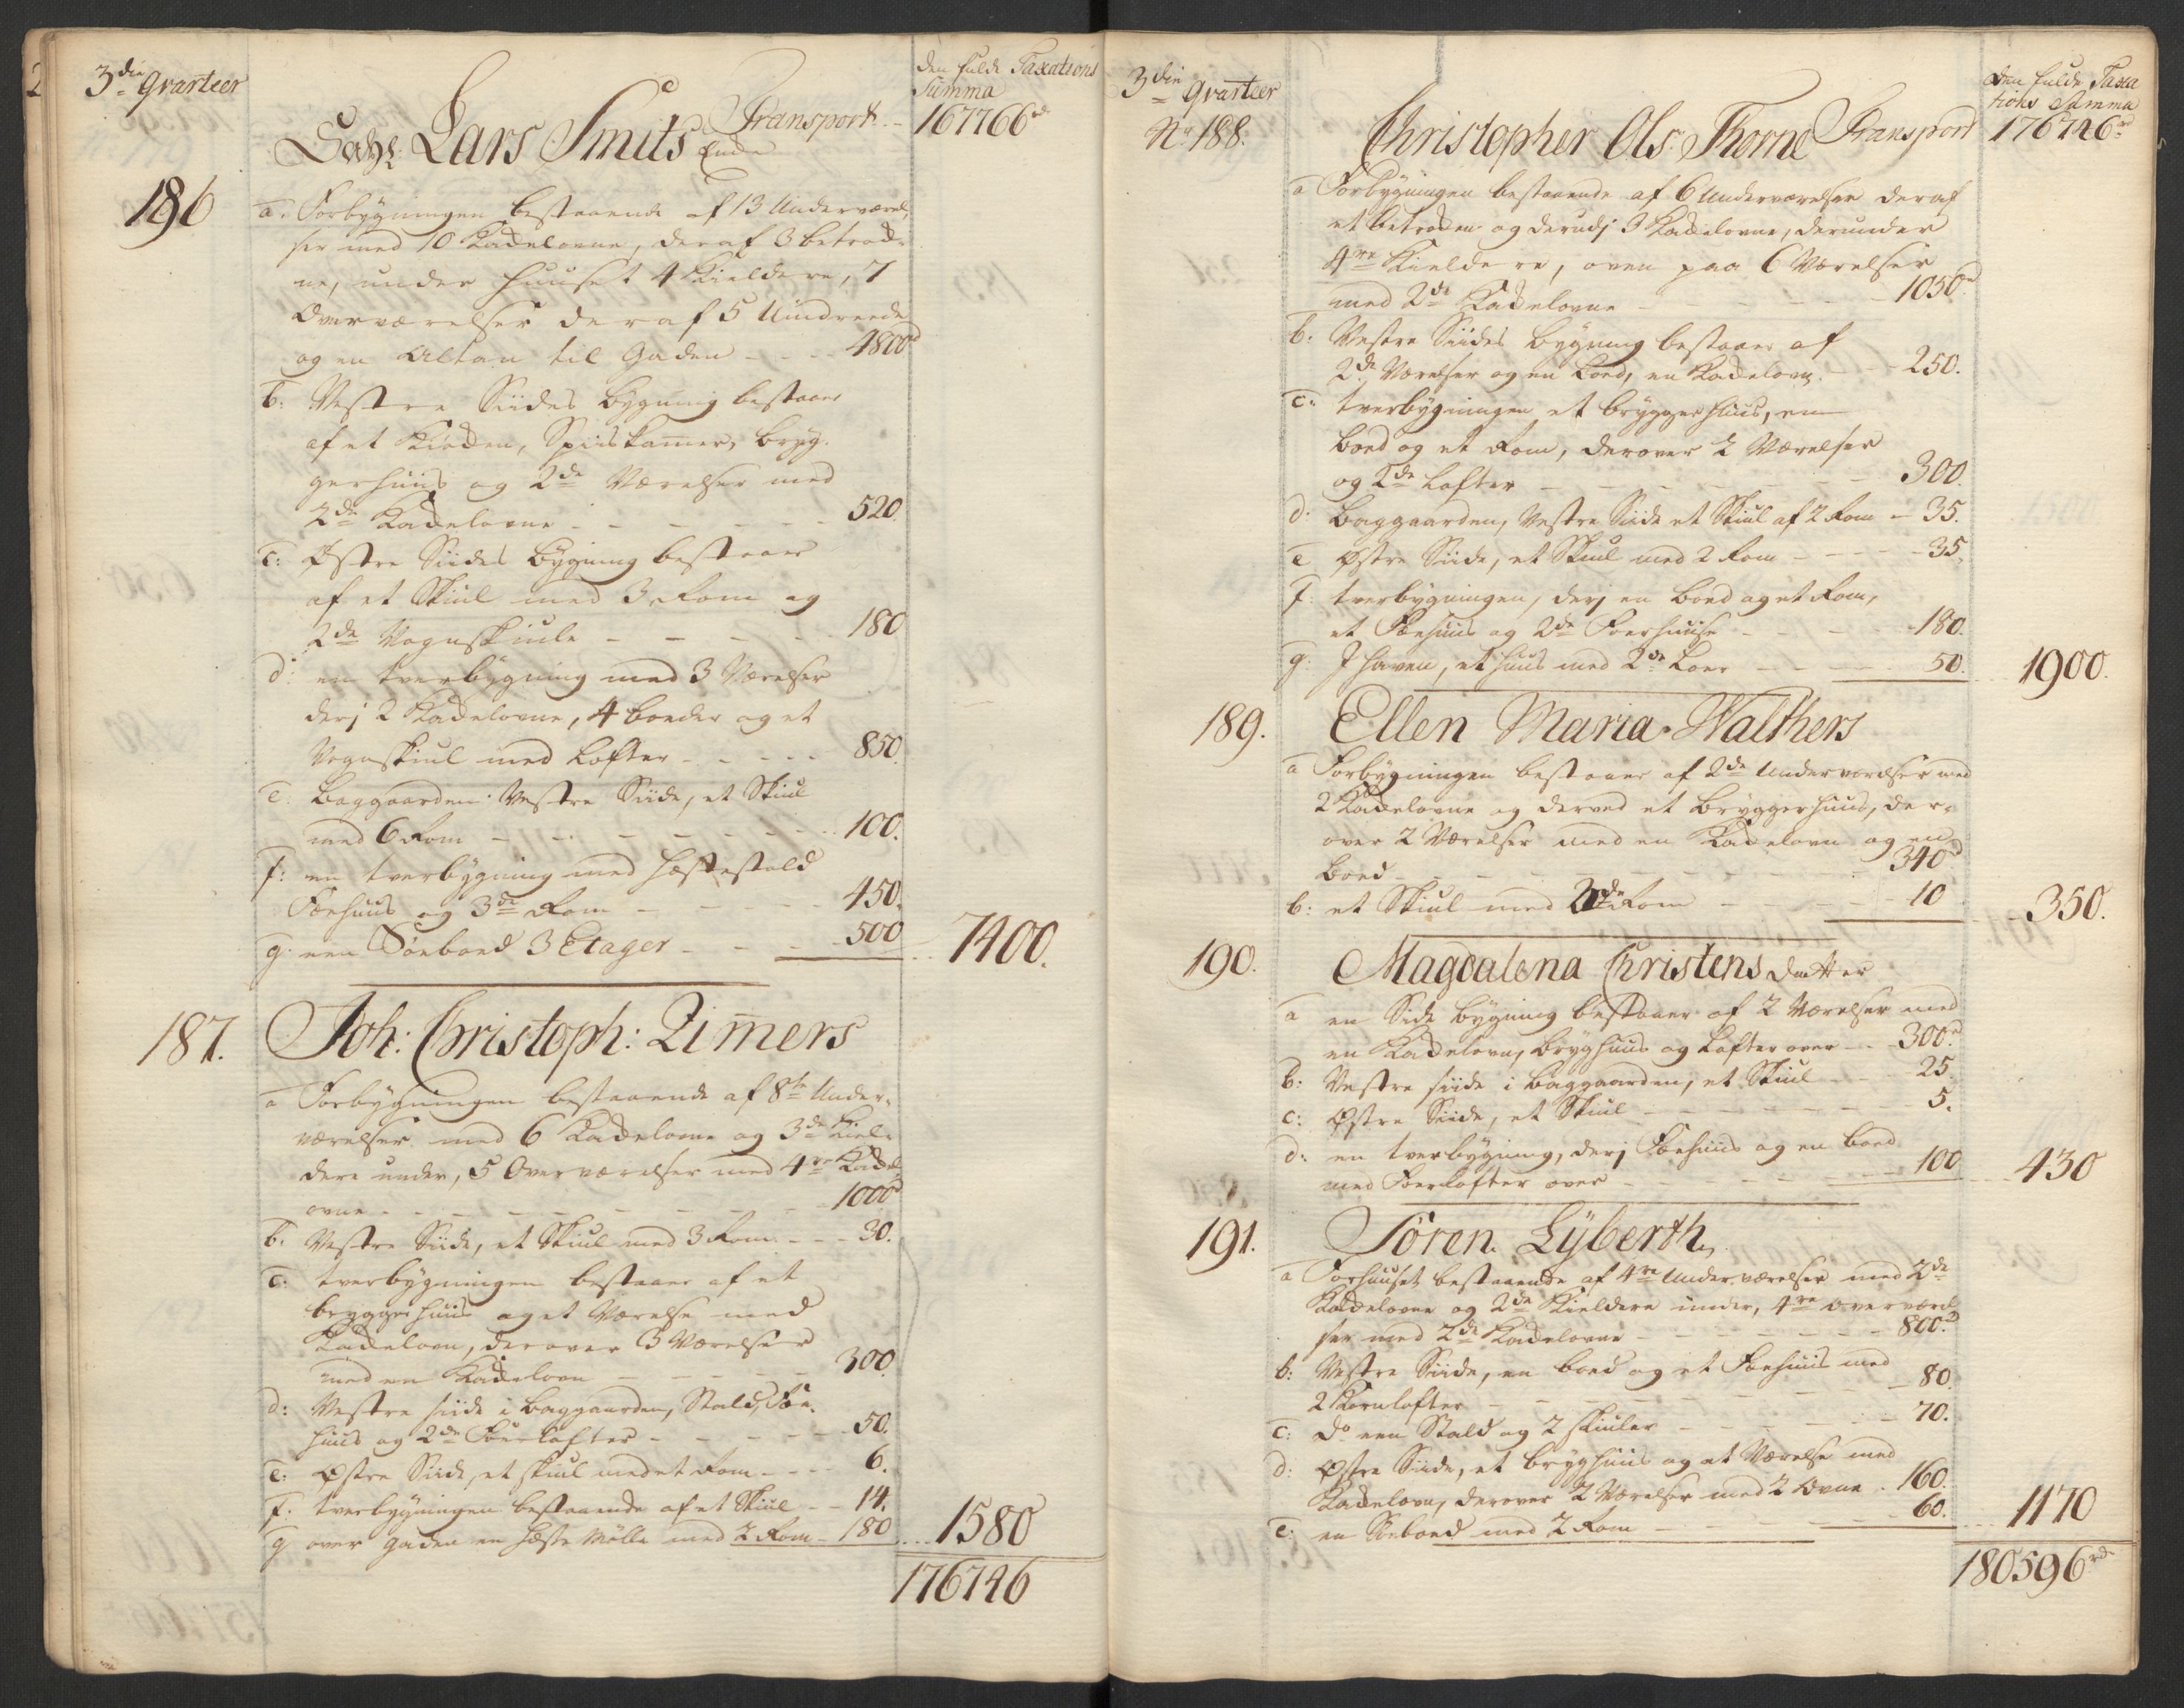 3die Qvarteer
den fulde Taxations
Summa
Transport 167766rd
Sahl Lars Smits Enke
196
a: Forbygningen bestaaende af 13 Underværel-
ser med 10 Kackelovne, deraf 3 betræd-
ne, under Huuset 4 Kieldere, 7
Overværelser deraf 5 Uindreede
og en Altan til Gaden - - - 4800rd
b: Vestre Siides Bygning bestaaer
af et Kiøcken, Spiiskamer, Bryg-
gerhuus og 2de Værelser med
2de Kackelovne - - - 520.
c: Østre Siides Bygning bestaaer
af et Skiul med 3 Rom og
2de Vognskiule - - - 180
d: en tverbygning med 3 Værelser
derj 2 Kackelovne, 4 boeder og et
Vognskiul med Lofter - - - 850.
e: Baggaarden: Vestre Siide, et Skiul
med 6 Rom - - - 100.
f: en tverbygning med Hæstestald
Fæehuus og 3de Rom - - - 450.
g: een Søeboed 3 Etager - - - 500 7400.
187. Joh: Christoph: Zim̄ers
a Forbygningen bestaaende af 8te Under-
værelser med 6 Kackelovne og 3de Kiel-
dere under, 5 Overværelser med 4re Kackel-
ovne - - - 1000rd
b. Vestre Siide, et Skiul med 3 Rom - - - 30.
c: tverbygningen bestaaer af et
bryggerhuus og et Værelse med
Kackelovn, derover 3 Værelser
med en Kackelovn - - - 300.
d: Vestre siide i Baggaarden, Stald, Fæe-
huus og 2de Foerlofter - - - 50.
e: Østre Siide, et skiul med et Rom - - - 6.
f. tverbygningen bestaaende af et Skiul - - 14.
g over gaden en Hæste Mølle med 2 Rom - 180 1580
176746
3die Qvarteer
den fulde Taxa
tions Summa
No 188. Christopher Ols: Thorne Transport 176746rd
a Forbygningen bestaaende af 6 Underværelser deraf
et betræcken og derudj 3 Kackelovne, derunder
4re Kieldere, oven paa 6 Værelser
med 2de Kackelovne - - - 1050rd
b: Vestre Siides bygning bestaaer af
2de Værelser og en boed, en Kackelovn - - 250.
c: tverbygningen et bryggerhuus, en
boed og et Rom, derover 2 Værelser
og 2de Lofter - - - 300.
d: Baggaarden, Vestre Siide et Skiul af 2 Rom - 35.
e Østre Siide, et Skiul med 2 Rom - - - 35.
f: tverbygningen, derj en boed og et Rom,
et Fæehuus og 2de Foerhuuse - - - 180.
g: J Haven, et Huus med 2de Loer - - - 50. 1900.
189. Ellen Maria Walthers
a Forbygningen bestaaer af 2de Underværelser med
2 Kackelovne og derved et Bryggerhuus, der-
over 2 Værelser med en Kackelovn og en
boed - - - 340rd
b: et Skiul med 2de Rom - - - 10 350.
190. Magdalena Christens Datter
a en Side bygning bestaaer af 2 Værelser med
en Kackelovn, bryghuus og Lofter over - - 300rd
b: Vestre siide i baggaarden, et Skiul - - 25.
c: Østre Siide, et Skiul - - - 5.
d: en tverbygning, derj Fæehuus og en boed
med Foerlofter over - - - 100 430
191. Søren Lyberth
a Forhuuset bestaaende af 4re Underværelser med 2de
Kackelovne og 2de Kieldere under, 4re Overværel
ser med 2de Kackelovne - - - 800rd
b: Vestre Siide, en boed og et Fæehuus med
2 Kornlofter - - - 80.
c: do een Stald og 2 skiuler - - - 70.
d: Østre Siide, et bryghuus og et Værelse med
Kackelovn, derover 2 Værelser med 2 Ovne - 160.
e: en Søeboed med 2 Rom - - - 60. 1170
180596rd